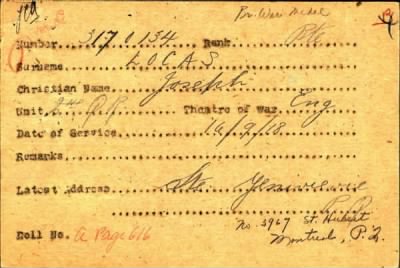 Br. War Medal
Number 3170134 Rank Pte
Surname LOCAS
Christian Name Joseph
Unit 2nd Q.R. Theatre of War Eng
Date of Service 16/9/18
Remarks
Latest Address Ste Genevieve
P.Q.
No. 3967 St. Hubert
Montreal, P.Q.
Roll No. A Page 616